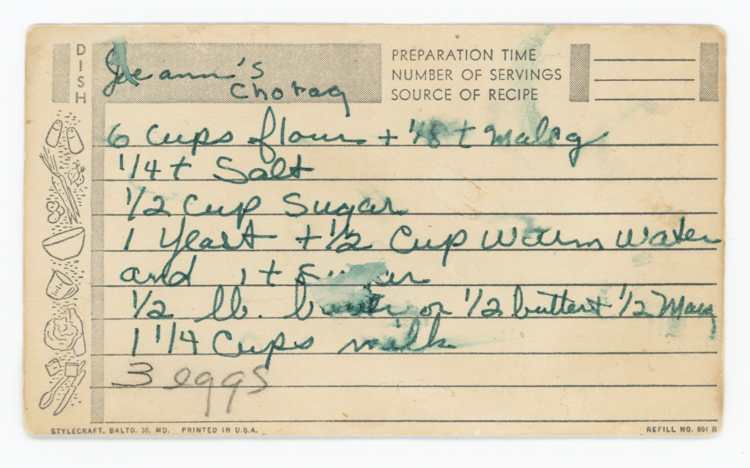 DISH
Jeann's
Chorag
PREPARATION TIME
NUMBER OF SERVINGS
SOURCE OF RECIPE
6 Cups flour + 1/8 t Maleg
1/4 t Salt
1/2 Cup Sugar
1 Yeast + 1/2 Cup Warm Water
and 1 t Sugar
1/2 lb. butter or 1/2 butter + 1/2 Marg
1 1/4 Cups milk
3 eggs
STYLECRAFT, BALTO. 30, MD. PRINTED IN U.S.A.
REFILL NO. 601 R